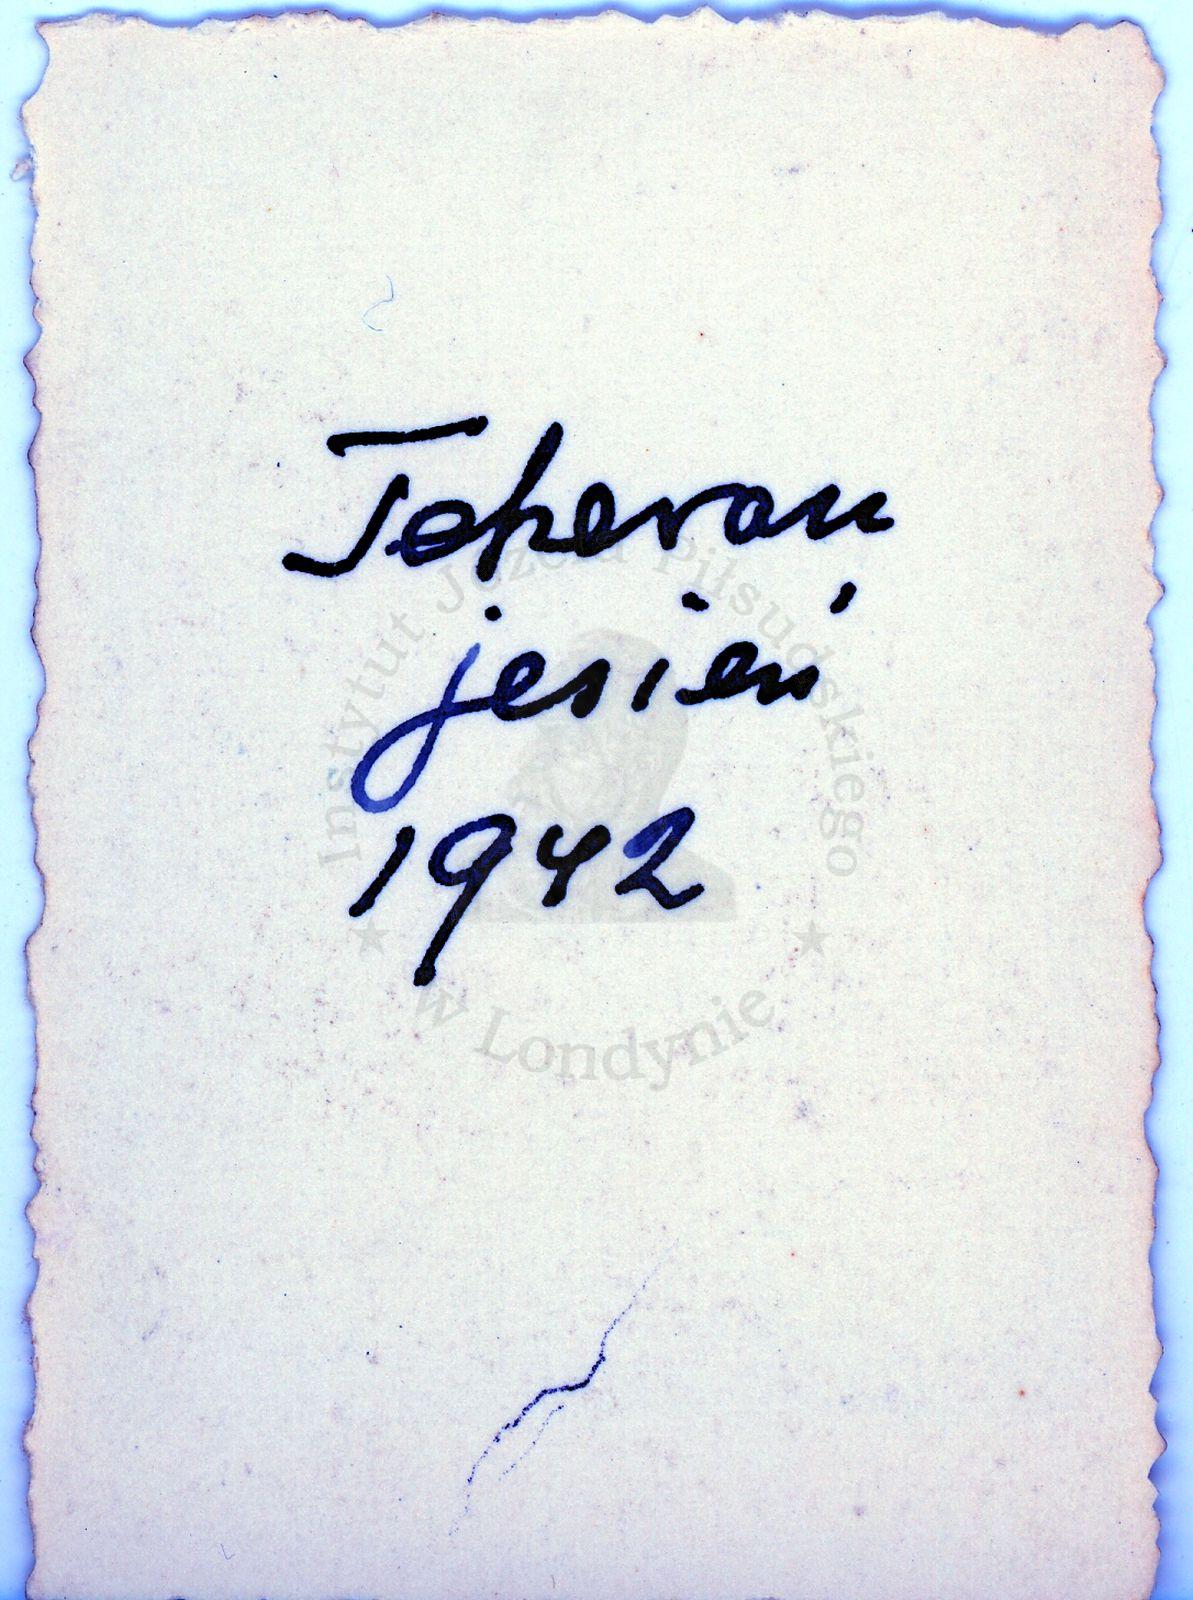 Teheran
jesień
1942
Instytut Józefa Piłsudskiego
w Londynie